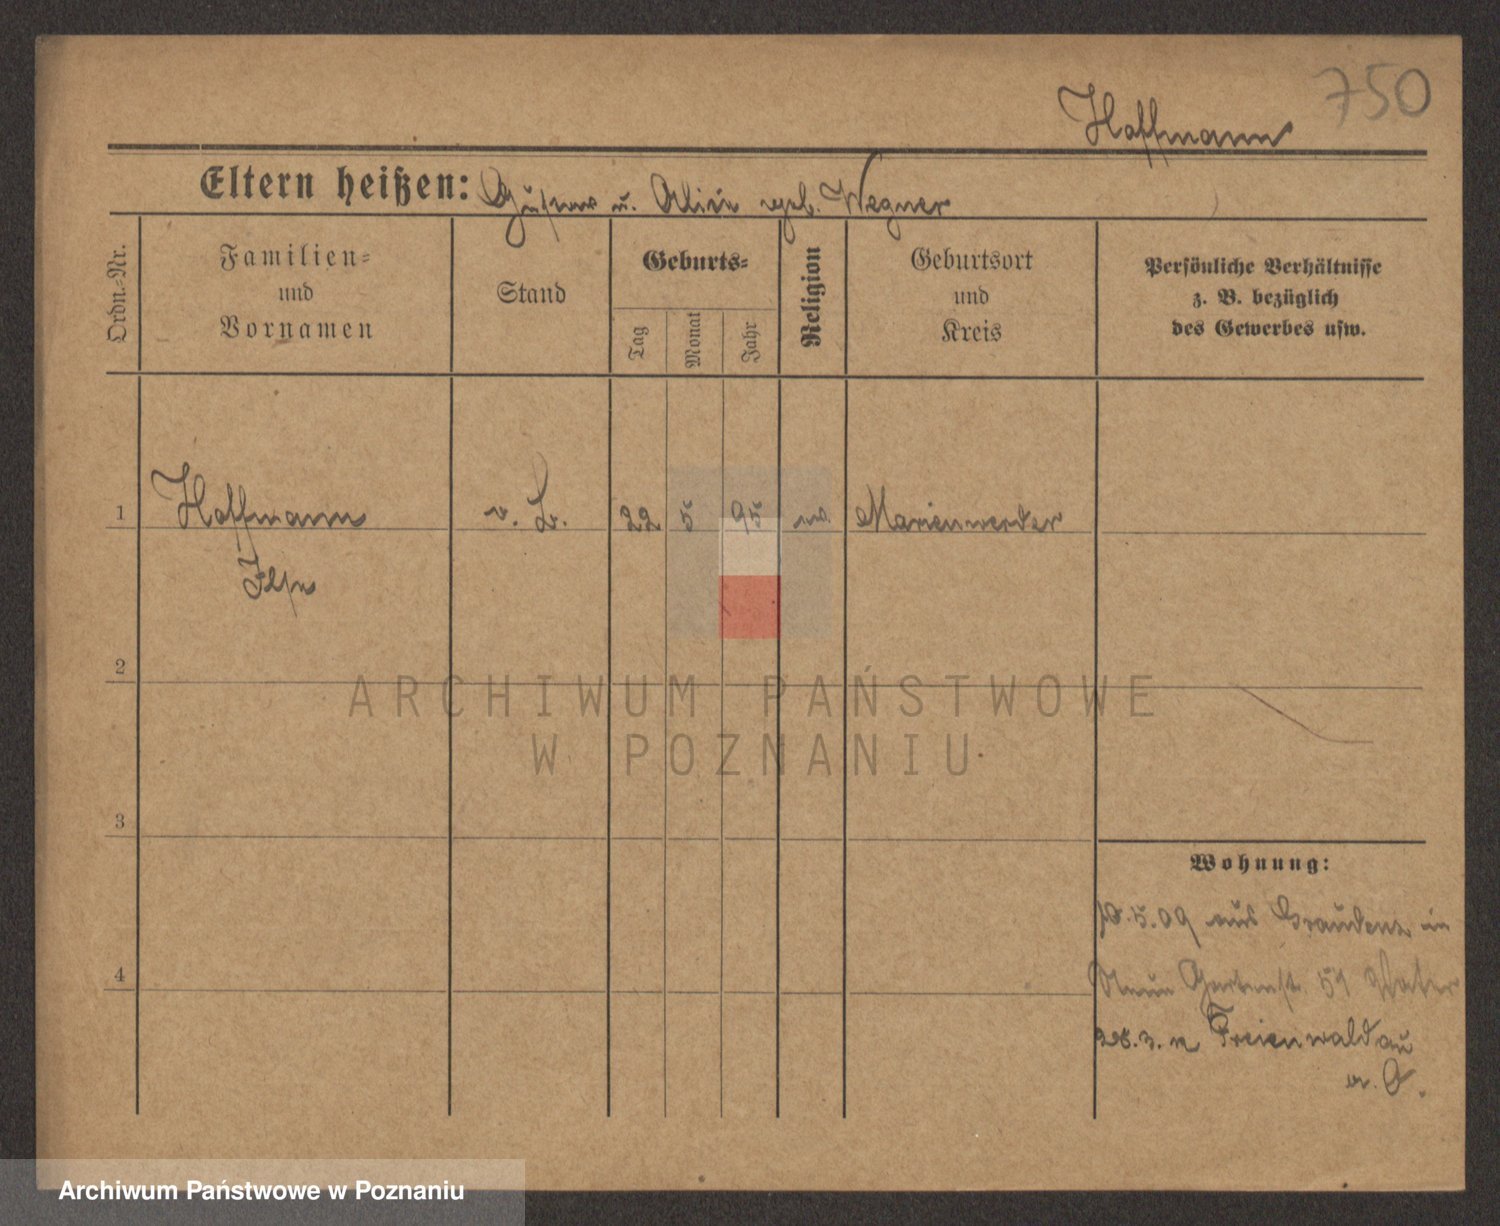 750
Hoffmann
Eltern heißen: Gustav u. Alice geb. Wegner
Ordn.-Nr.
Familien-
und
Vornamen
Stand
Geburts-
Tag
Monat
Jahr
Religion
Geburtsort
und
Kreis
Persönliche Verhältnisse
z. B. bezüglich
des Gewerbes usw.
1 Hoffmann 22 5 95 Marienwerder
Ilse
2
3
4
Wohnung:
.5.09 aus Graudenz in
Neue Gartenst. 51 Vater
28.3. n Freienwald
a. O.
ARCHIWUM PAŃSTWOWE
W POZNANIU
Archiwum Państwowe w Poznaniu